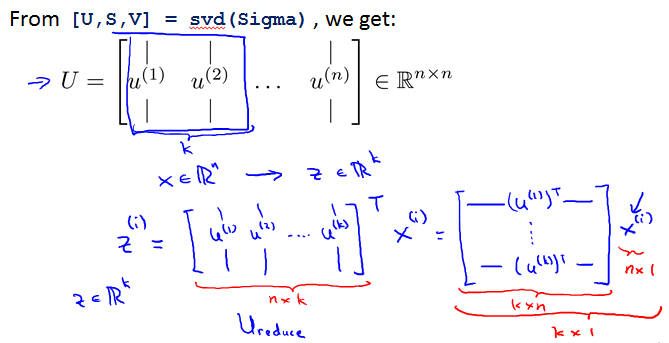 From [U,S,V] = svd(Sigma), we get:
→ U = [ | | | ; u^(1) u^(2) … u^(n) ; | | | ] ∈ ℝ^{n×n}
k
x ∈ ℝ^n → z ∈ ℝ^k
z^(i) = [ | | | ; u^(1) u^(2) .... u^(k) ; | | | ]^T x^(i) = [ —(u^(1))^T— ; ⋮ ; —(u^(k))^T— ] x^(i)
z ∈ ℝ^k
n×k
k×n
n×1
Ureduce
k×1